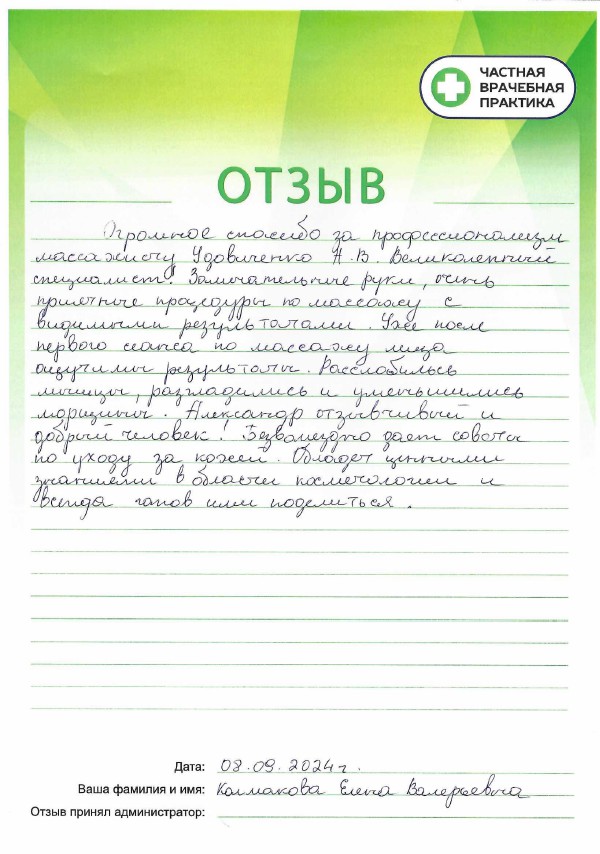 ЧАСТНАЯ
ВРАЧЕБНАЯ
ПРАКТИКА
ОТЗЫВ
Огромное спасибо за профессионализм
массажисту Удовиченко А.В. Великолепный
специалист! Замечательные руки, очень
приятные процедуры по массажу с
видимыми результатами. Уже после
первого сеанса по массажу лица
ощутимы результаты. Расслабились
мышцы, разгладились и уменьшились
морщины. Александр отзывчивый и
добрый человек! Безвозмездно дает советы
по уходу за кожей. Обладает ценными
знаниями в области косметологии и
всегда готов ими поделиться.
Дата: 08.09.2024г.
Ваша фамилия и имя: Колмакова Елена Валерьевна
Отзыв принял администратор: